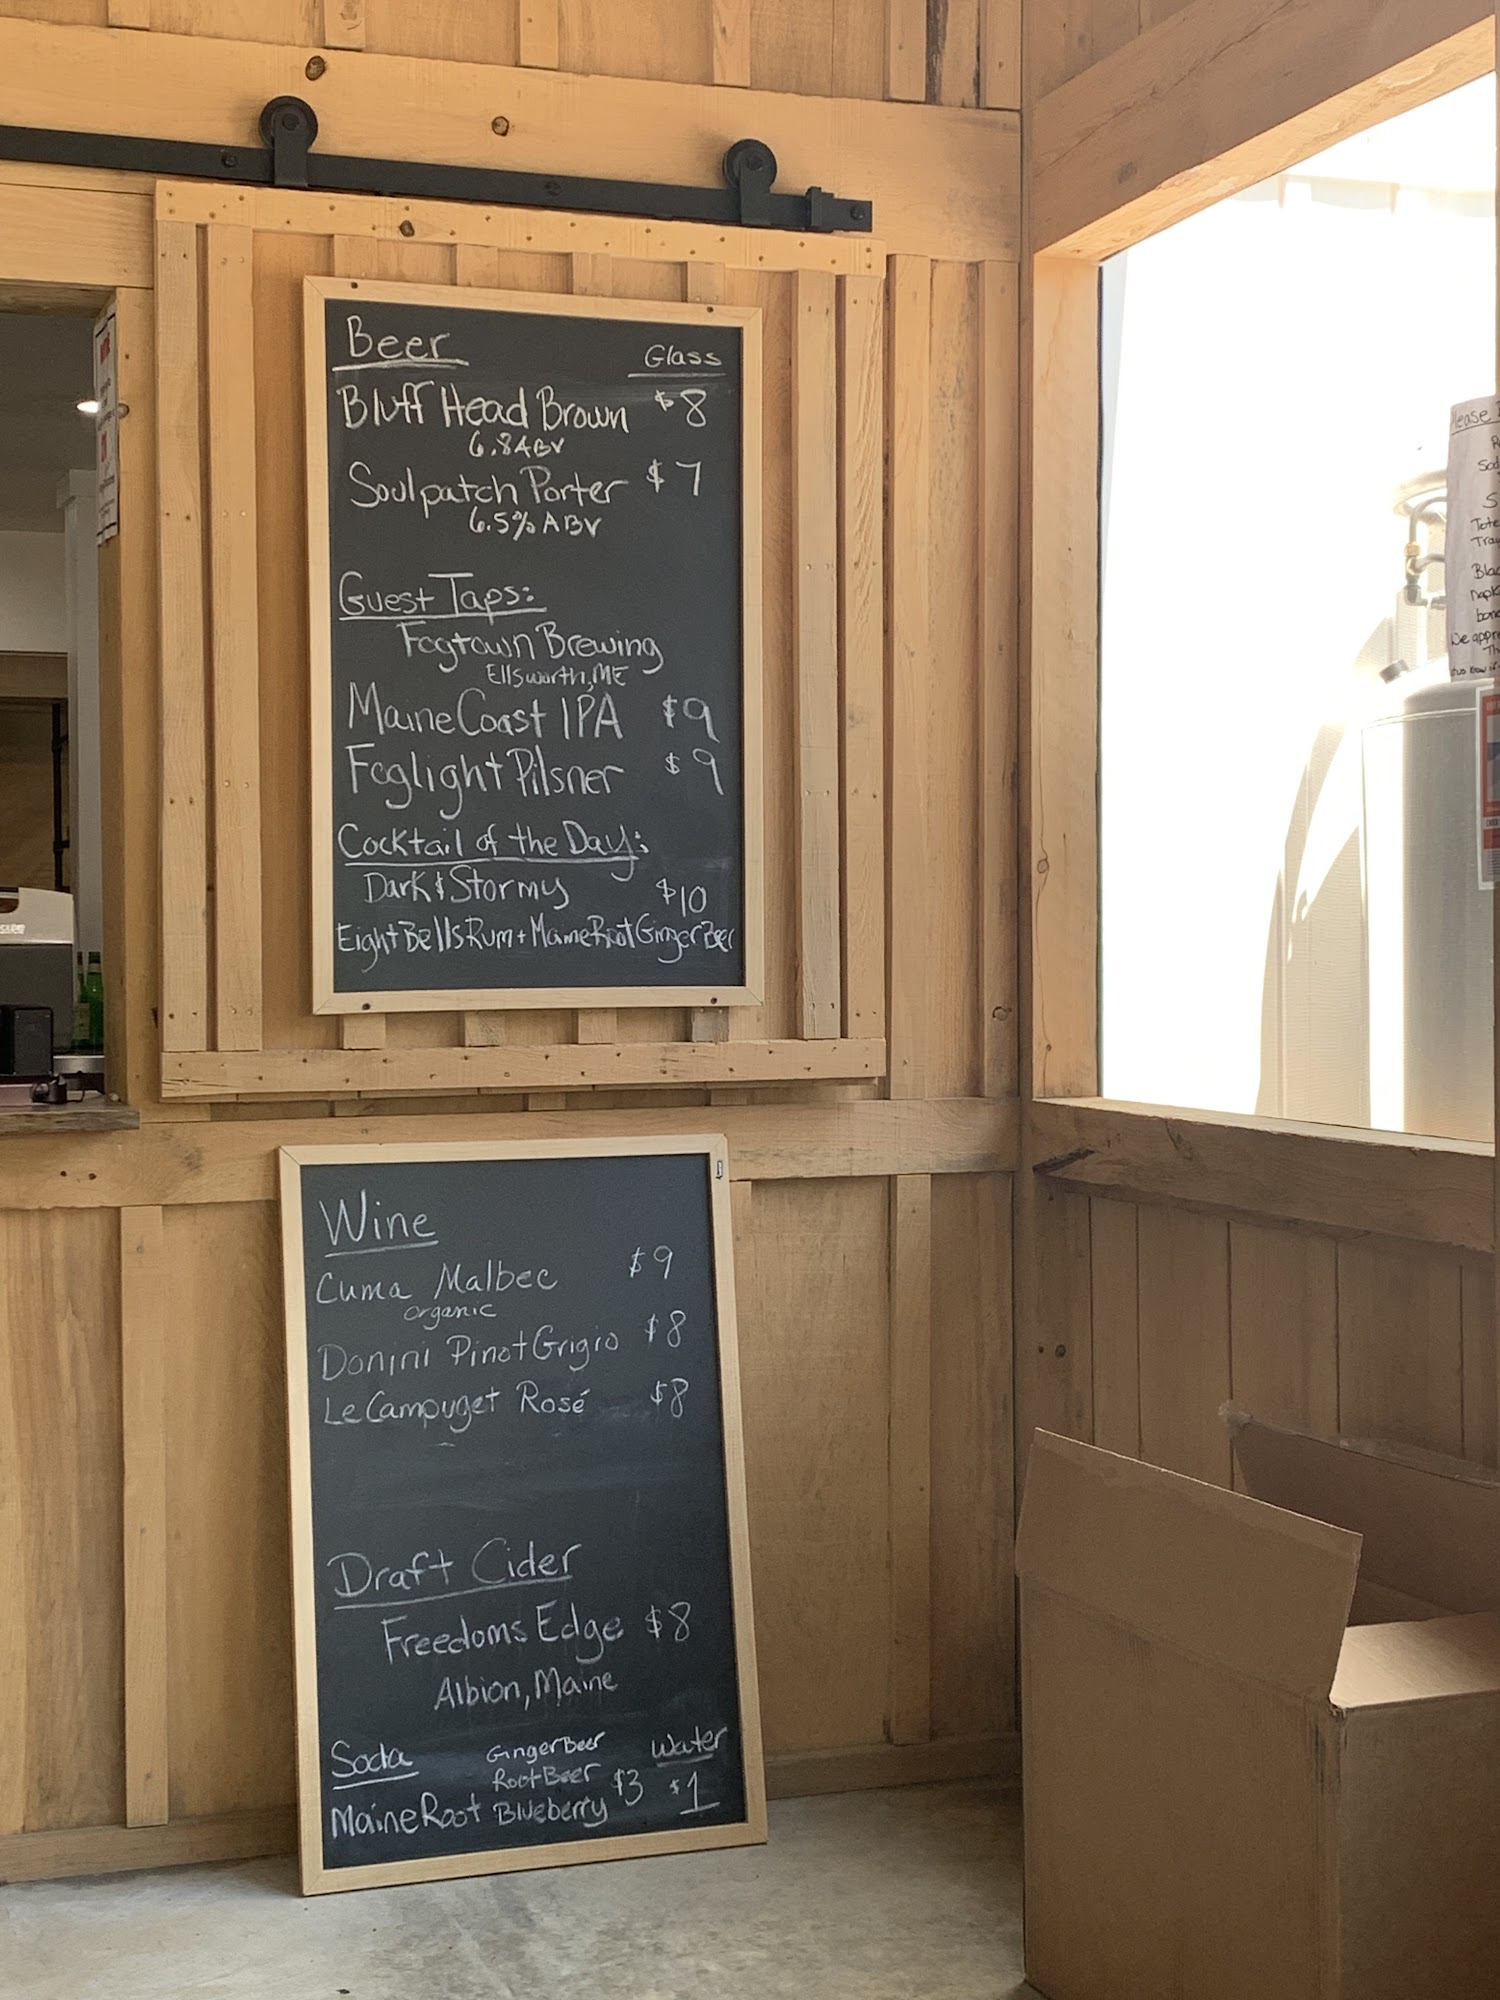 Beer
Glass
Bluff Head Brown $8
6.8 ABV
Soulpatch Porter $7
6.5% ABV
Guest Taps:
Fogtown Brewing
Ellsworth, ME
Maine Coast IPA $9
Foglight Pilsner $9
Cocktail of the Day:
Dark & Stormy $10
Eight Bells Rum + Maine Root Ginger Beer
Wine
Cuma Malbec $9
organic
Donini Pinot Grigio $8
Le Campuget Rosé $8
Draft Cider
Freedoms Edge $8
Albion, Maine
Soda Ginger Beer Water
Root Beer $3 $1
Maine Root Blueberry
Please